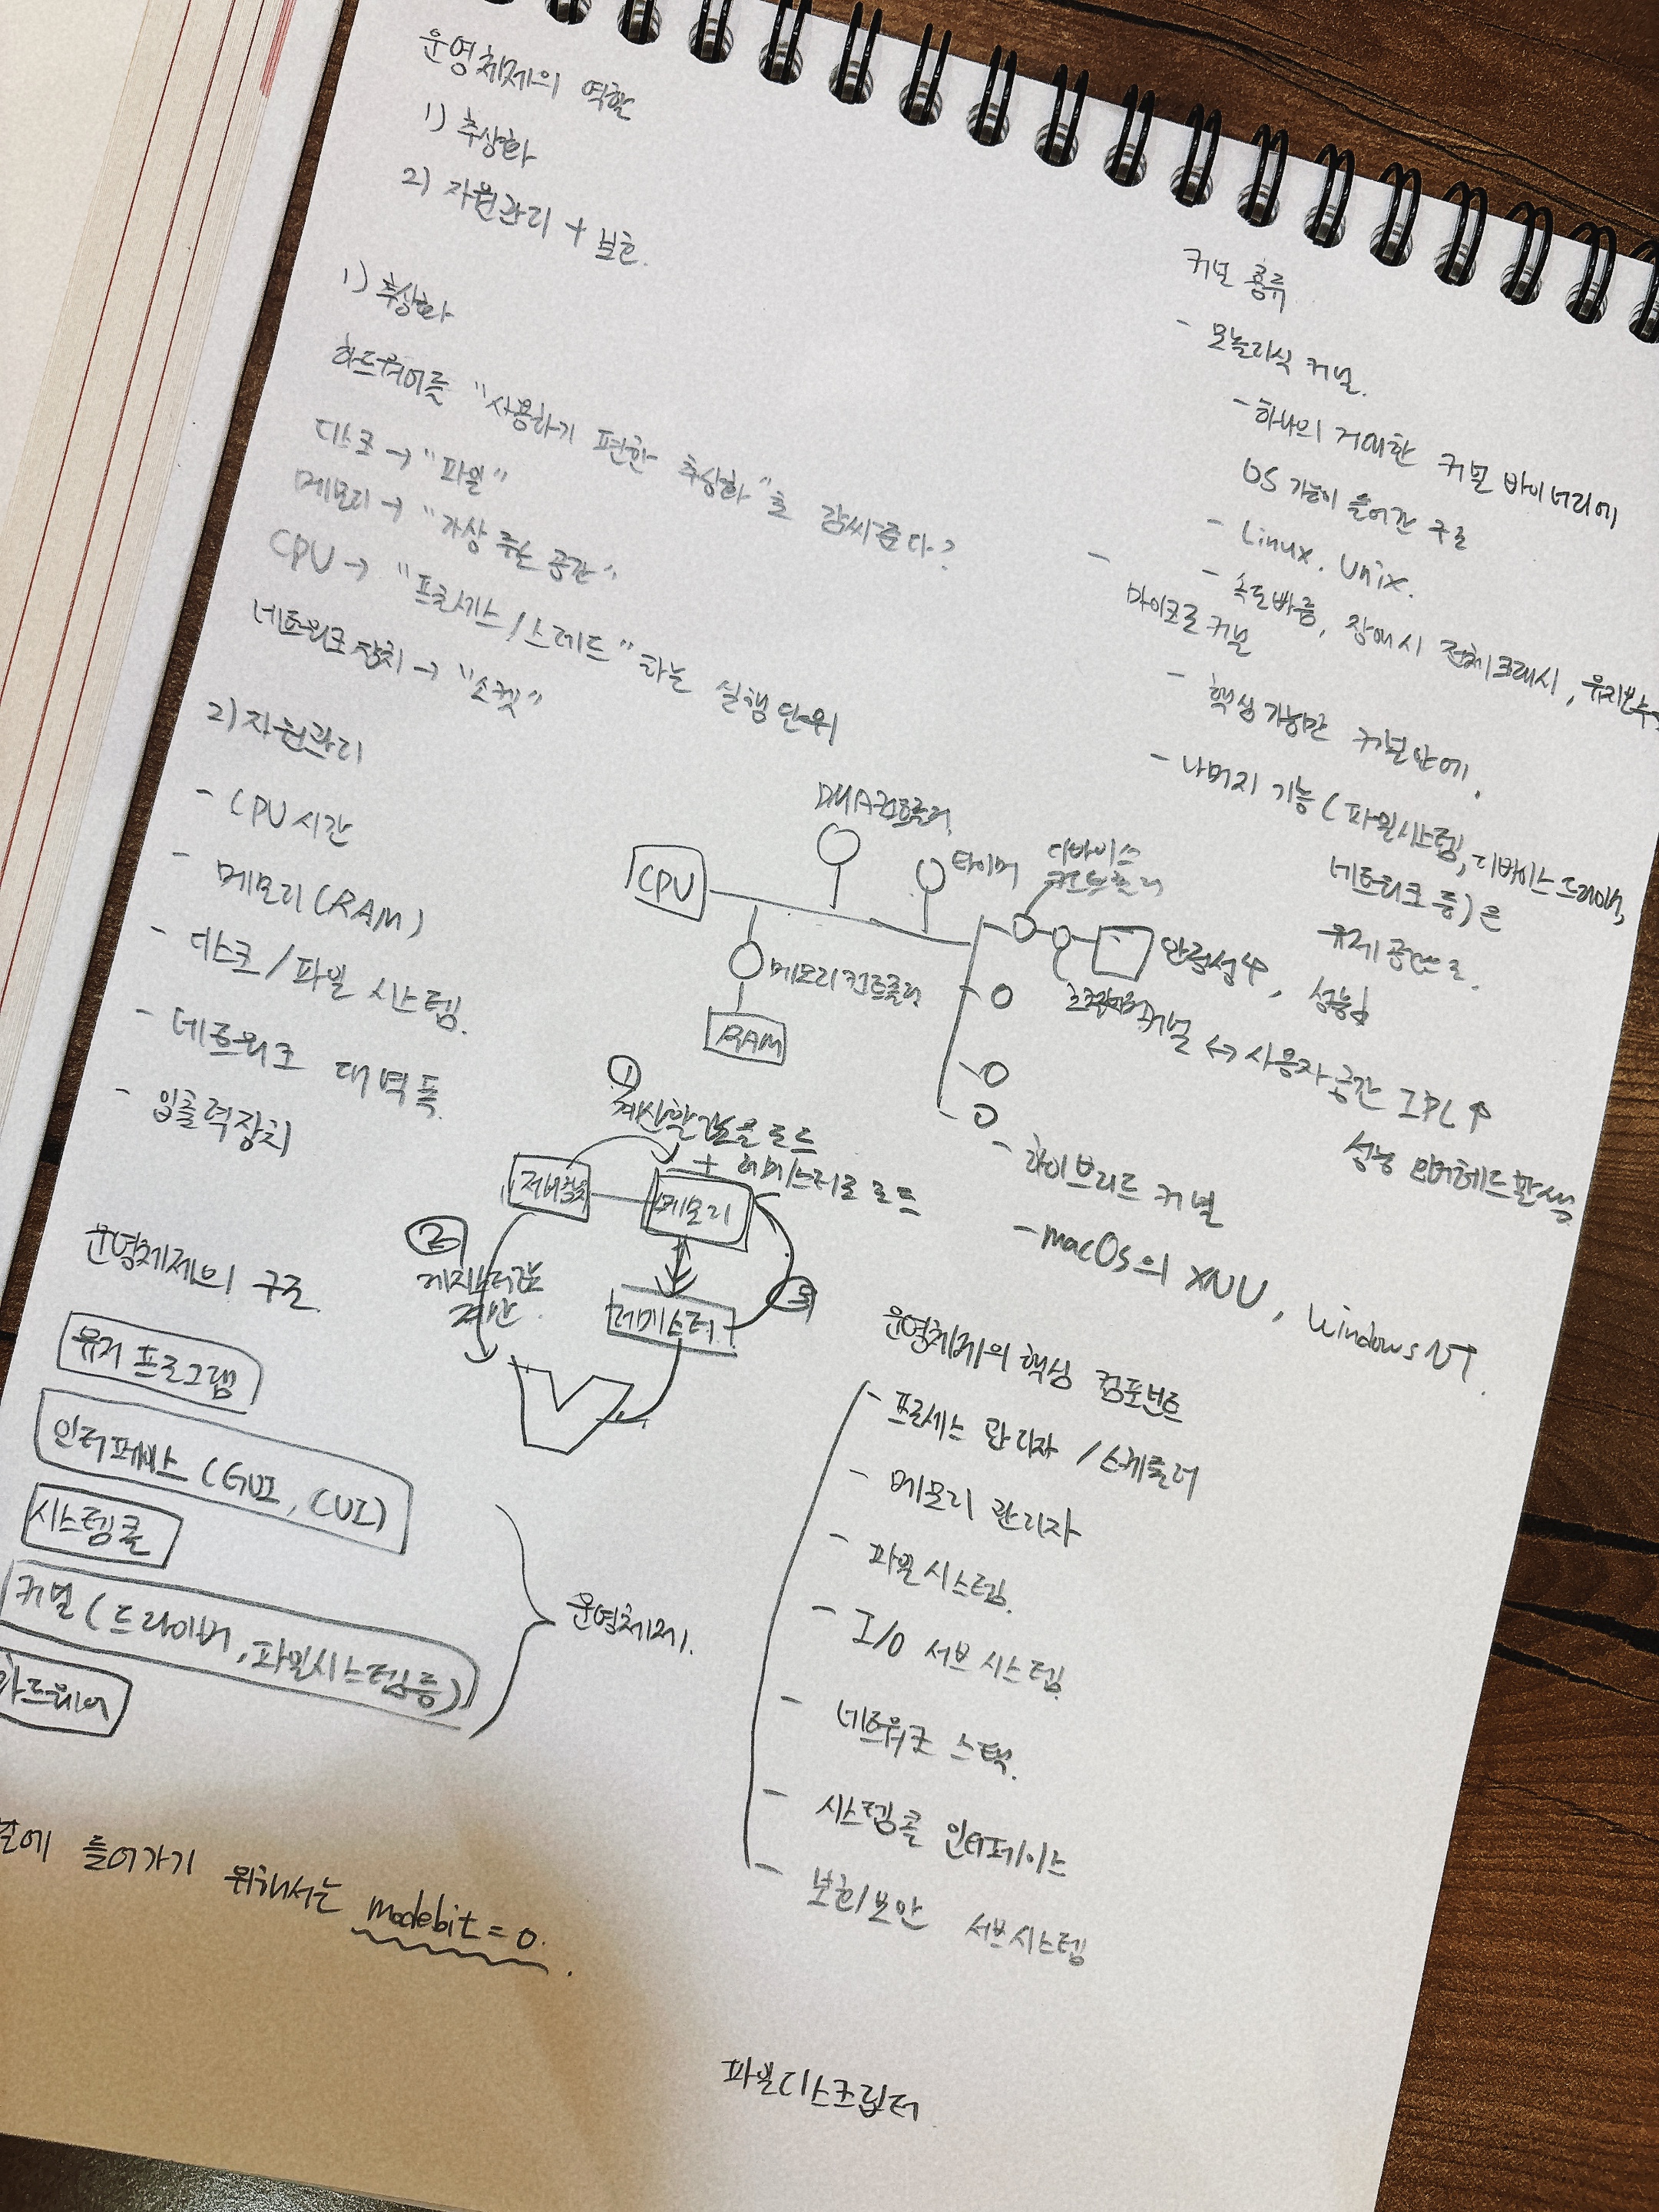 운영체제의 역할
1) 추상화
2) 자원관리 + 보호.
1) 추상화
하드웨어를 "사용하기 편한 추상화"로 감싸준다?
디스크 → "파일"
메모리 → "가상 주소 공간"
CPU → "프로세스/스레드"라는 실행 단위
네트워크 장치 → "소켓"
2) 자원관리
- CPU 시간
- 메모리(RAM)
- 디스크/파일 시스템.
- 네트워크 대역폭.
- 입출력장치
운영체제의 구조.
유저 프로그램
인터페이스 (GUI, CUI)
시스템콜
커널 (드라이버, 파일시스템등)
하드웨어
운영체제.
에 들어가기 위해서는 modebit = 0.
CPU
DMA컨트롤러
타이머
디바이스
컨트롤러
메모리컨트롤러
RAM
①
계산할 값을 로드
+ 레지스터로 로드
제어장치
메모리
②
레지스터값
계산.
레지스터
③
커널 종류
- 모놀리식 커널.
- 하나의 거대한 커널 바이너리에
OS 기능이 들어간 구조
- Linux. Unix.
- 속도빠름, 장애시 전체크래시, 유지보수
- 마이크로 커널
- 핵심기능만 커널안에.
- 나머지 기능 (파일시스템, 디바이스 드라이버,
네트워크 등)은
유저 공간으로.
안정성↑, 성능↓
커널 ↔ 사용자 공간 IPC↑
성능 오버헤드 발생.
- 하이브리드 커널
- macOS의 XNU, Windows NT.
운영체제의 핵심 컴포넌트
- 프로세스 관리자 /스케줄러
- 메모리 관리자
- 파일시스템.
- I/O 서브 시스템.
- 네트워크 스택.
- 시스템콜 인터페이스
- 보호/보안 서브시스템
파일디스크립터